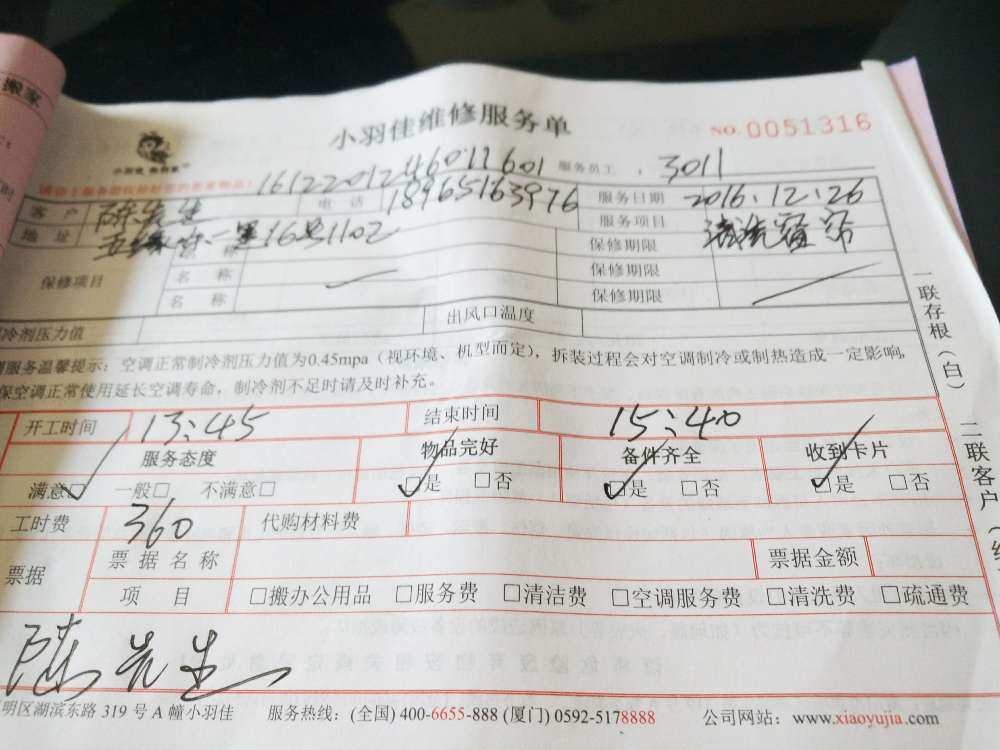 搬家
小羽佳维修服务单
NO.0051316
小羽佳
1612201246011601 服务员工 3011
客户 陈先生 电话 18965163976 服务日期 2016.12.26
地址 一里16号1102 服务项目
名称 保修期限
保修项目 名称 保修期限
名称 保修期限
冷剂压力值 出风口温度
服务温馨提示：空调正常制冷剂压力值为0.45mpa（视环境、机型而定），拆装过程会对空调制冷或制热造成一定影响，
保空调正常使用延长空调寿命，制冷剂不足时请及时补充。
开工时间 13:45 结束时间 15:40
服务态度 物品完好 备件齐全 收到卡片
满意☑ 一般□ 不满意□ ☑是 □否 ☑是 □否 ☑是 □否
工时费 360 代购材料费
票据 票据名称 票据金额
项目 □搬办公用品 □服务费 □清洁费 □空调服务费 □清洗费 □疏通费
陈先生
明区湖滨东路 319 号 A 幢小羽佳 服务热线：(全国) 400-6655-888 (厦门) 0592-5178888 公司网站：www.xiaoyujia.com
一联存根（白）
二联客户